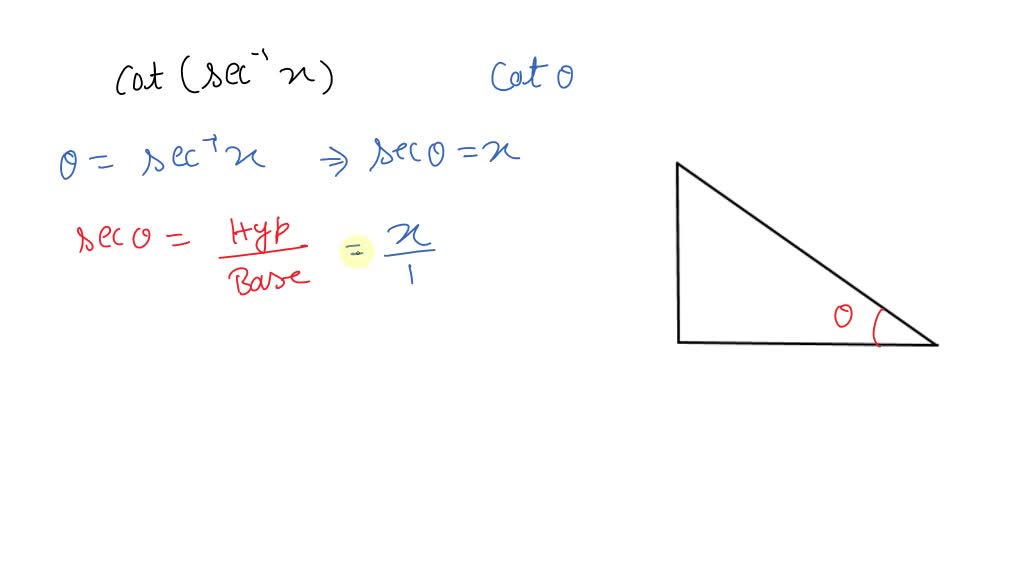 cot (sec⁻¹ x) cot θ
θ = sec⁻¹ x ⇒ sec θ = x
sec θ = Hyp / Base = x / 1
θ